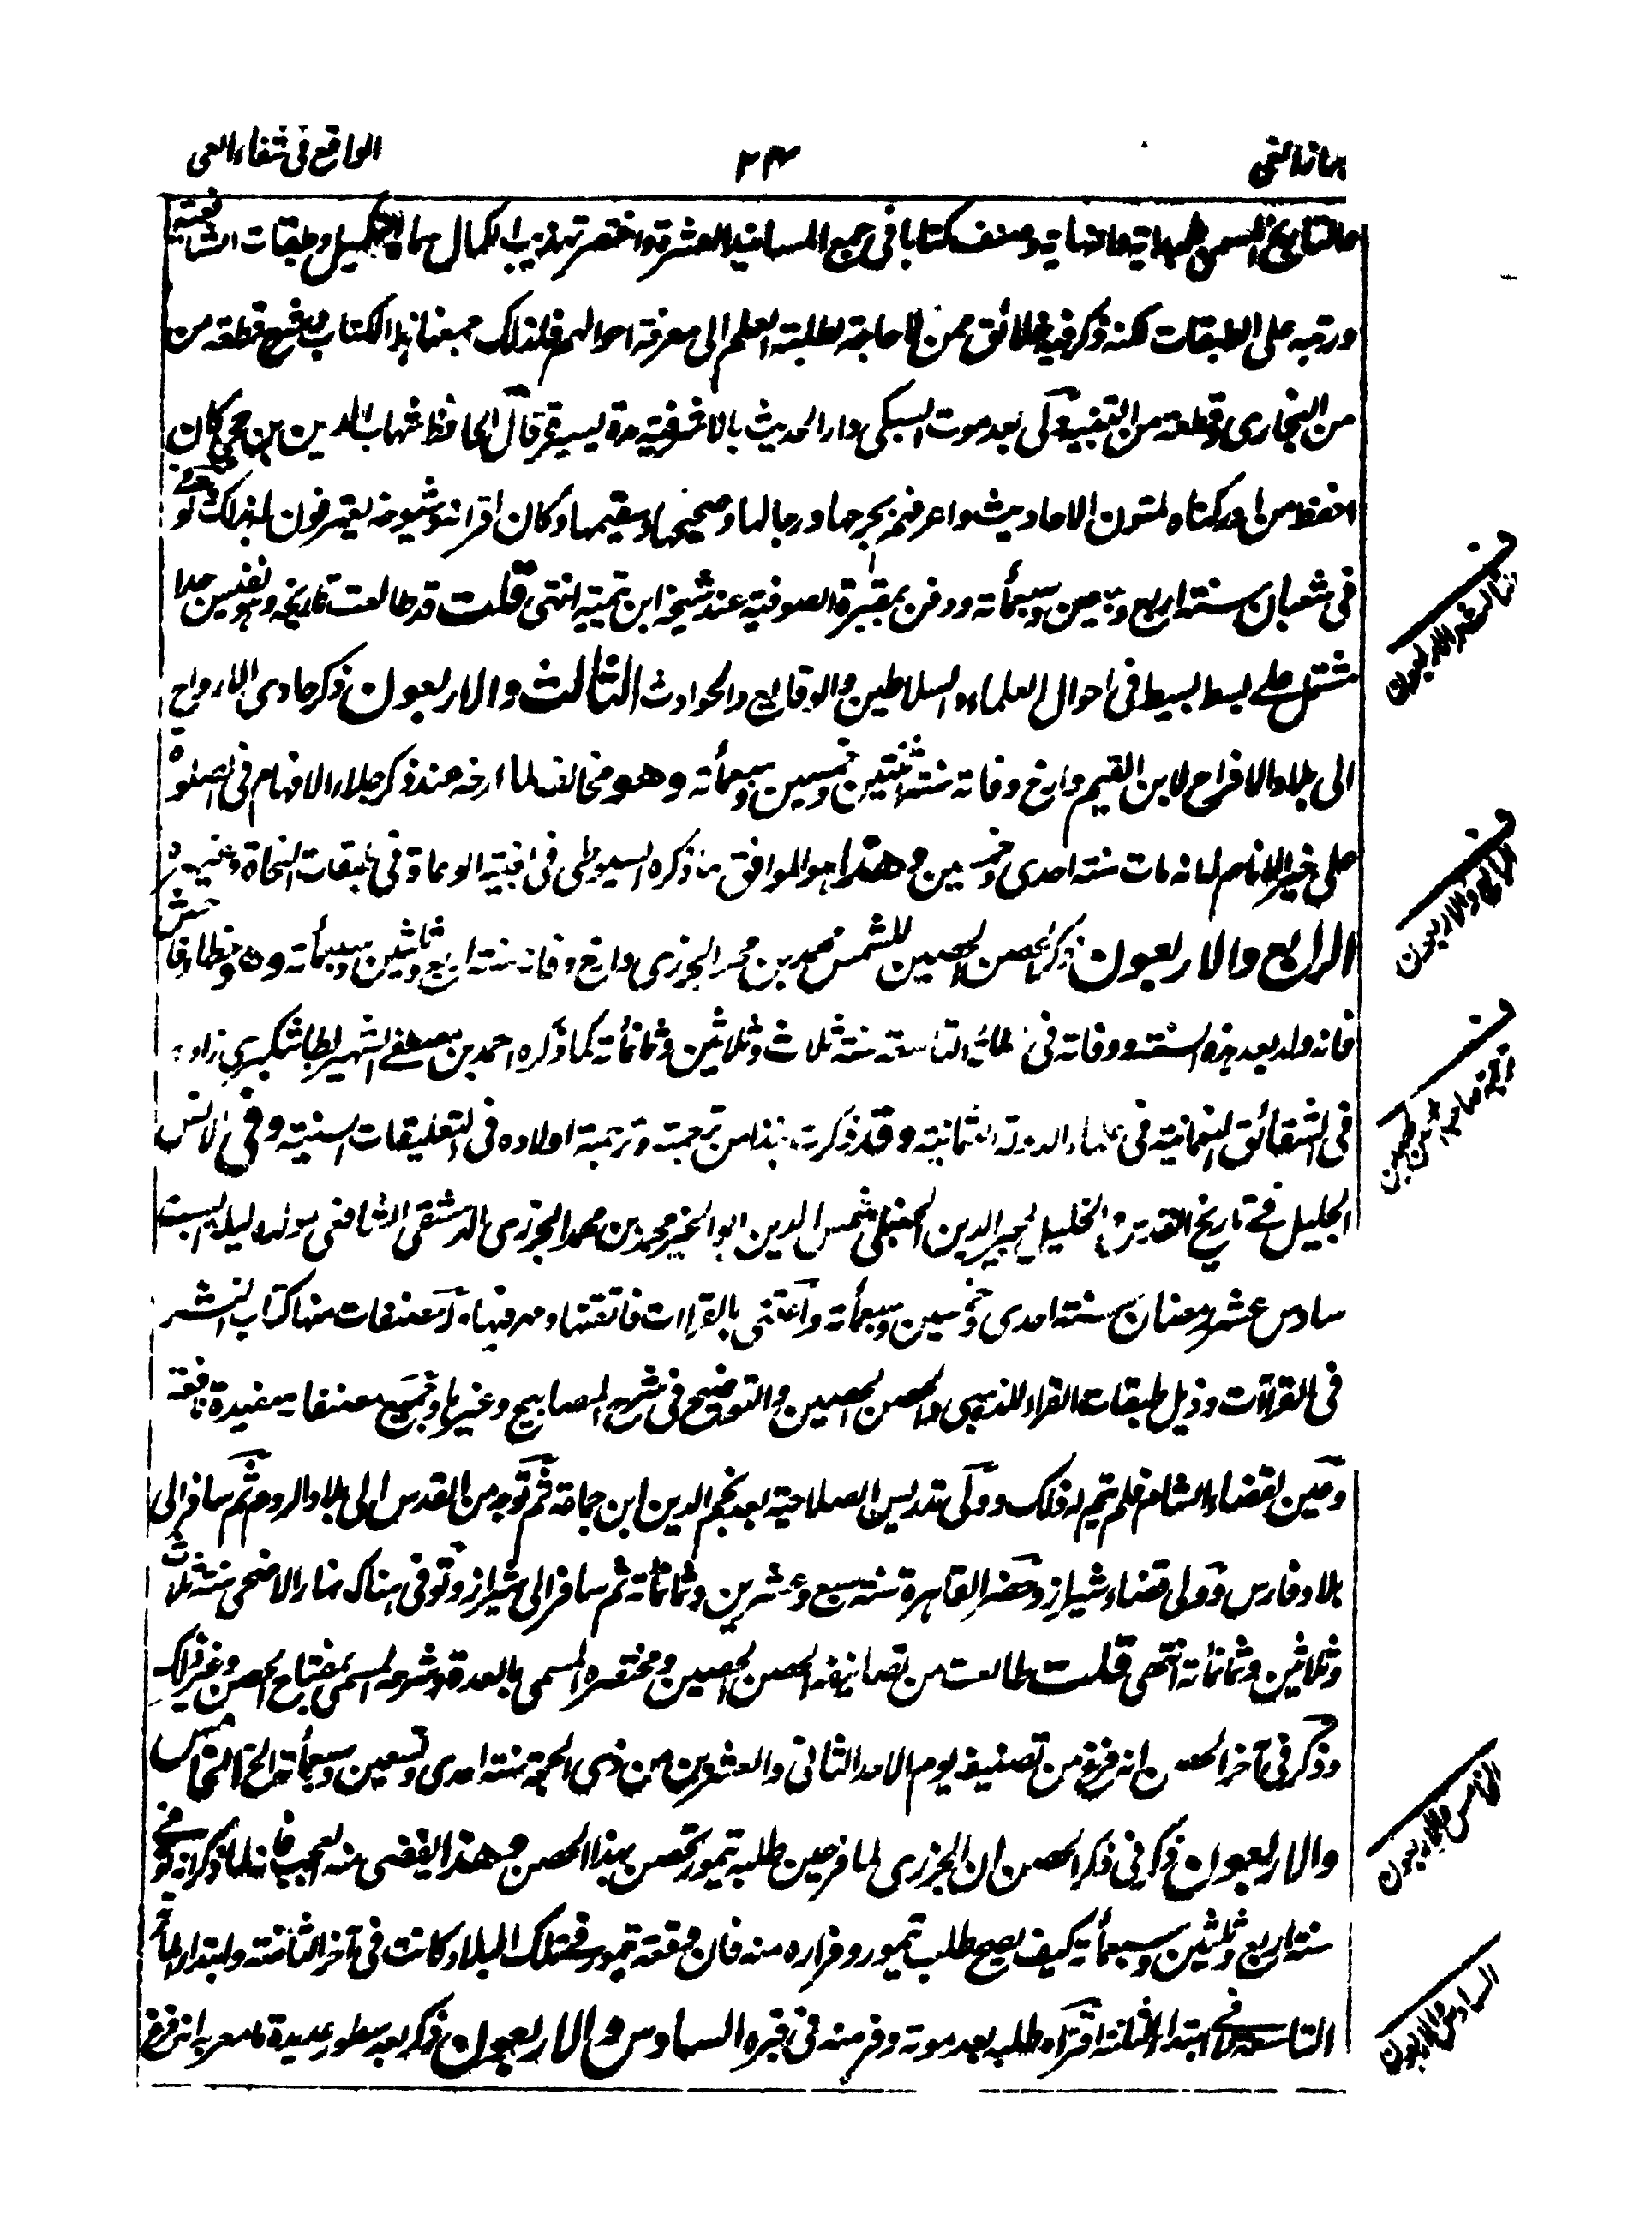 ابراز الغي
٢٤
الواقع في شفاء العي
والتاريخ المسمى بالبداية والنهاية وصنف كتابا في جمع المسانيد العشرة واختصر تهذيب الكمال سماه التكميل وطبقات الشافعية
ورتبه على الطبقات لكنه ذكر فيه خلائق ممن لا حاجة لطلبة العلم الى معرفة احوالهم فلذلك جمعنا هذا الكتاب وشرح قطعة من
من البخاري وقطعة من التنبيه وولى بعد موت السبكي دار الحديث بالاشرفية مدة يسيرة قال الحافظ شهاب الدين بن حجي كان
احفظ من ادركناه لمتون الاحاديث واعرفهم بجرحها ورجالها وصحيحها وسقيمها وكان اقرانه وشيوخه يعترفون له بذلك توفي
في شعبان سنة اربع وسبعين وسبعمأة ودفن بمقبرة الصوفية عند شيخه ابن تيمية انتهى قلت قد طالعت تاريخه وهو نفيس جدا
مشتمل على بسط بسيط في احوال العلماء والسلاطين والوقايع والحوادث الثالث والاربعون ذكر حادى الارواح
الى بلاد الافراح لابن القيم وارخ وفاته سنة اثنتين وخمسين وسبعمأة وهو مخالف لما ارخه عند ذكر جلاء الافهام في الصلوة
على خير الانام انه مات سنة احدى وخمسين وهذا هو الموافق لما ذكره السيوطي في بغية الوعاة في طبقات النحاة وغيره
الرابع والاربعون ذكر الحصن الحصين للشمس محمد بن محمد الجزري وارخ وفاته سنة اربع وثلثين وسبعمأة وهو خطأ فاحش
فانه ولد بعد هذه السنة ووفاته في المائة التاسعة سنة ثلاث وثلاثين وثمانمأة كما ذكره احمد بن مصطفى الشهير بطاشكبري زاده
في الشقائق النعمانية في علماء الدولة العثمانية وقد ذكرت نبذا من ترجمته وترجمة اولاده في التعليقات السنية وفي الانس
الجليل في تاريخ القدس والخليل لمجير الدين الحنبلي شمس الدين ابو الخير محمد بن محمد الجزري الدمشقي الشافعي مولده ليلة السبت
سادس عشر رمضان سنة احدى وخمسين وسبعمأة واعتنى بالقراات فاتقنها ومهر فيها وله مصنفات منها كتاب النشر
في القراآت وذيل طبقات القراء للذهبي والحصن الحصين والتوضيح في شرح المصابيح وغيرها وجميع مصنفاته مفيدة نافعة
وعين لقضاء الشام فلم يتم له ذلك وولى تدريس الصلاحية بعد نجم الدين ابن جماعة ثم توجه من القدس الى بلاد الروم ثم سافر الى
بلاد فارس وولى قضاء شيراز وحضر القاهرة سنة سبع وعشرين وثمانمأة ثم سافر الى شيراز وتوفى هناك نهار الاضحى سنة ثلاث
وثلاثين وثمانمأة انتهى قلت طالعت من تصانيفه الحصن الحصين ومختصره المسمى بالعدة وشرحه المسمى بمفتاح الحصن وغير ذلك
وذكر في آخر الحصن انه فرغ من تصنيفه يوم الاحد الثاني والعشرين من ذى الحجة سنة احدى وتسعين وسبعمأة الخ الخامس
والاربعون ذكر في ذكر الحصن ان الجزري لما فر حين طلبه تيمور تحصن بهذا الحصن وهذا يقضى منه العجب فانه لما ذكر انه توفي
سنة اربع وثلثين وسبعمأة كيف يصح طلب تيمور وفراره منه فان وقعة تيمور في تلك البلاد كانت في آخر الثامنة وابتداء المأة
التاسعة لا في ابتداء الثامنة افتراه طلبه بعد موته وفر منه في قبره السادس والاربعون ذكر بعد سطور عديدة ما معربه انه فرغ
الثالث والاربعون
الرابع والاربعون
الخامس والاربعون
السادس والاربعون